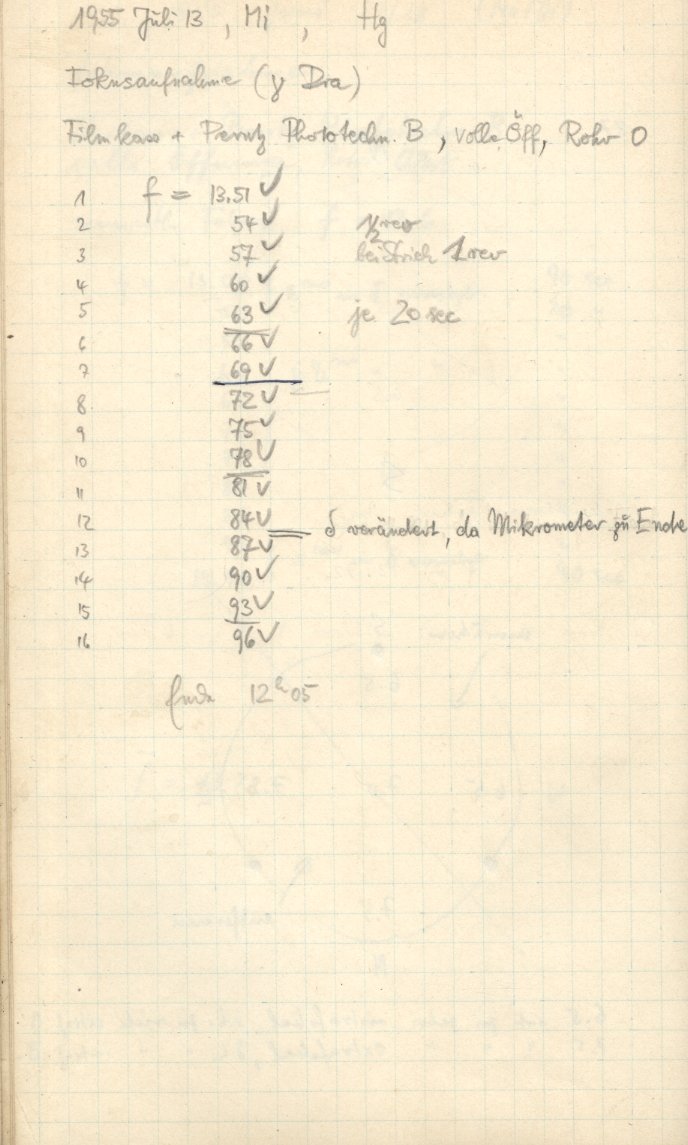 1955 Juli 13, Mi, Hg
Fokusaufnahme (γ Dra)
Filmkass + Perutz Phototechn. B, volle Öff, Rohr O
1 f = 13.51 ✓
2 54 ✓ 1/2 rev
3 57 ✓ bei Strich 1 rev
4 60 ✓
5 63 ✓ je 20 sec
6 66 ✓
7 69 ✓
8 72 ✓
9 75 ✓
10 78 ✓
11 81 ✓
12 84 ✓ δ verändert, da Mikrometer zu Ende
13 87 ✓
14 90 ✓
15 93 ✓
16 96 ✓
Ende 12h05